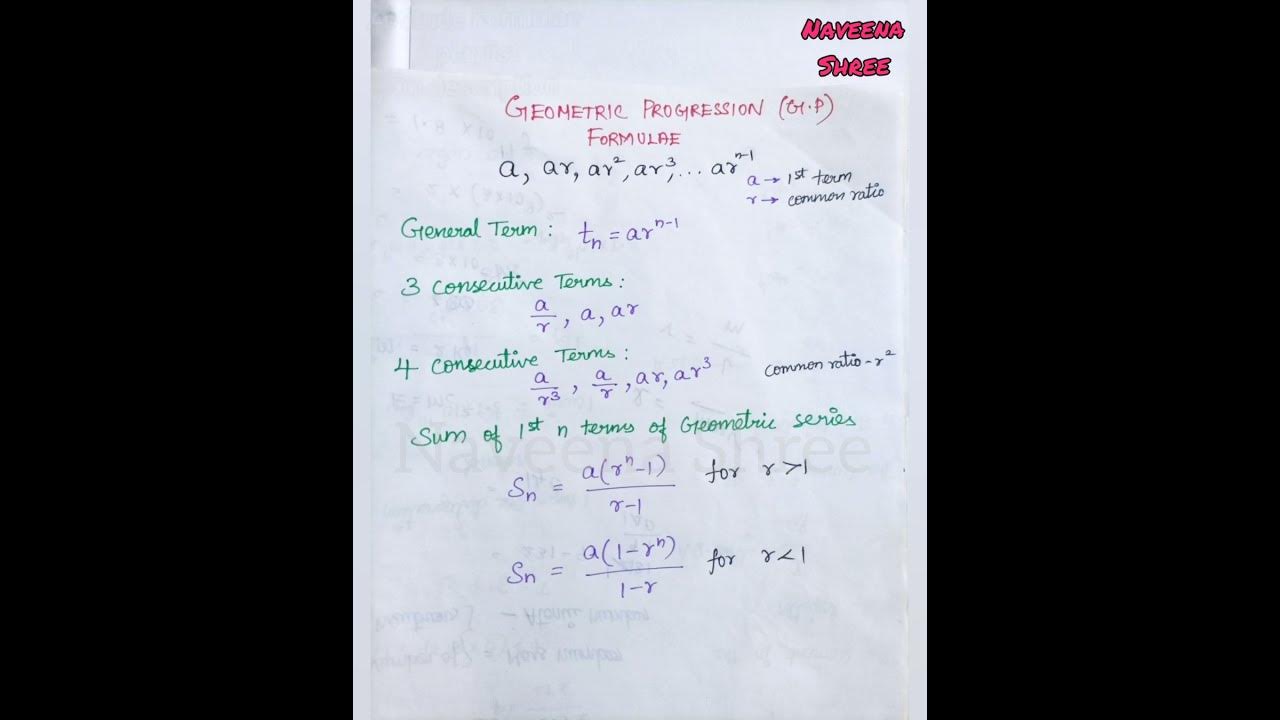 NAVEENA
SHREE
GEOMETRIC PROGRESSION (G.P)
FORMULAE
a, ar, ar², ar³, ... arⁿ⁻¹
a → 1st term
r → common ratio
General Term : tₙ = arⁿ⁻¹
3 consecutive Terms :
a/r, a, ar
4 consecutive Terms :
a/r³, a/r, ar, ar³ common ratio - r²
Sum of 1st n terms of Geometric series
Naveena Shree
Sₙ = a(rⁿ-1)/r-1 for r > 1
Sₙ = a(1-rⁿ)/1-r for r < 1